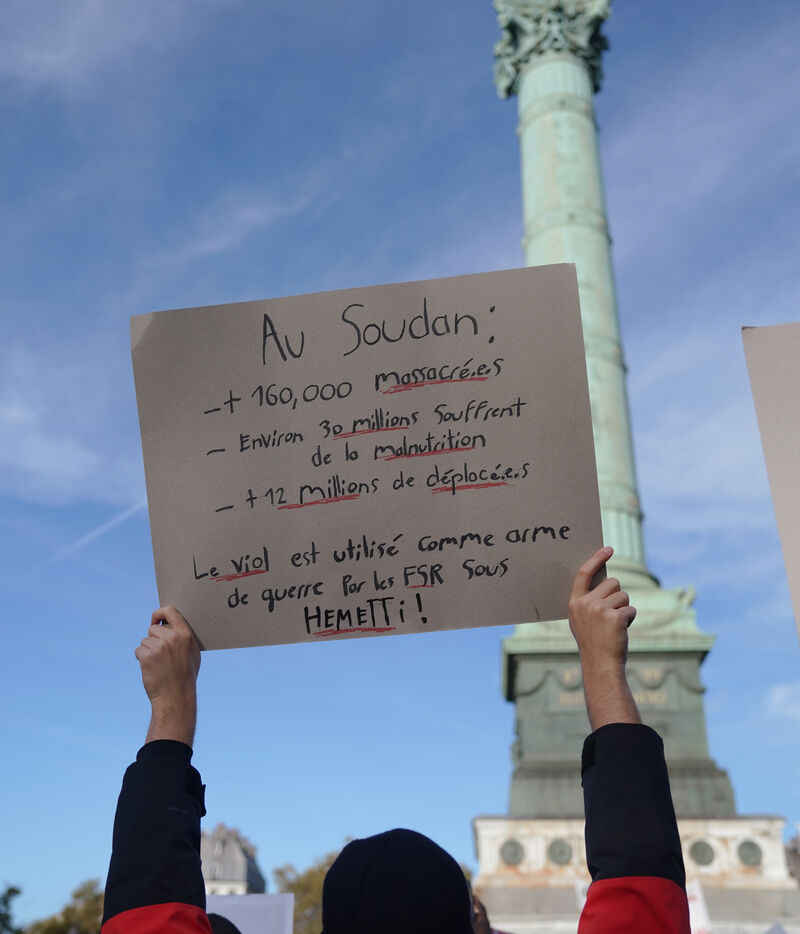 Au Soudan :
- + 160,000 massacré.e.s
- Environ 30 millions souffrent
de la malnutrition
- + 12 millions de déplacé.e.s
Le viol est utilisé comme arme
de guerre Par les FSR sous
HEMETTi !